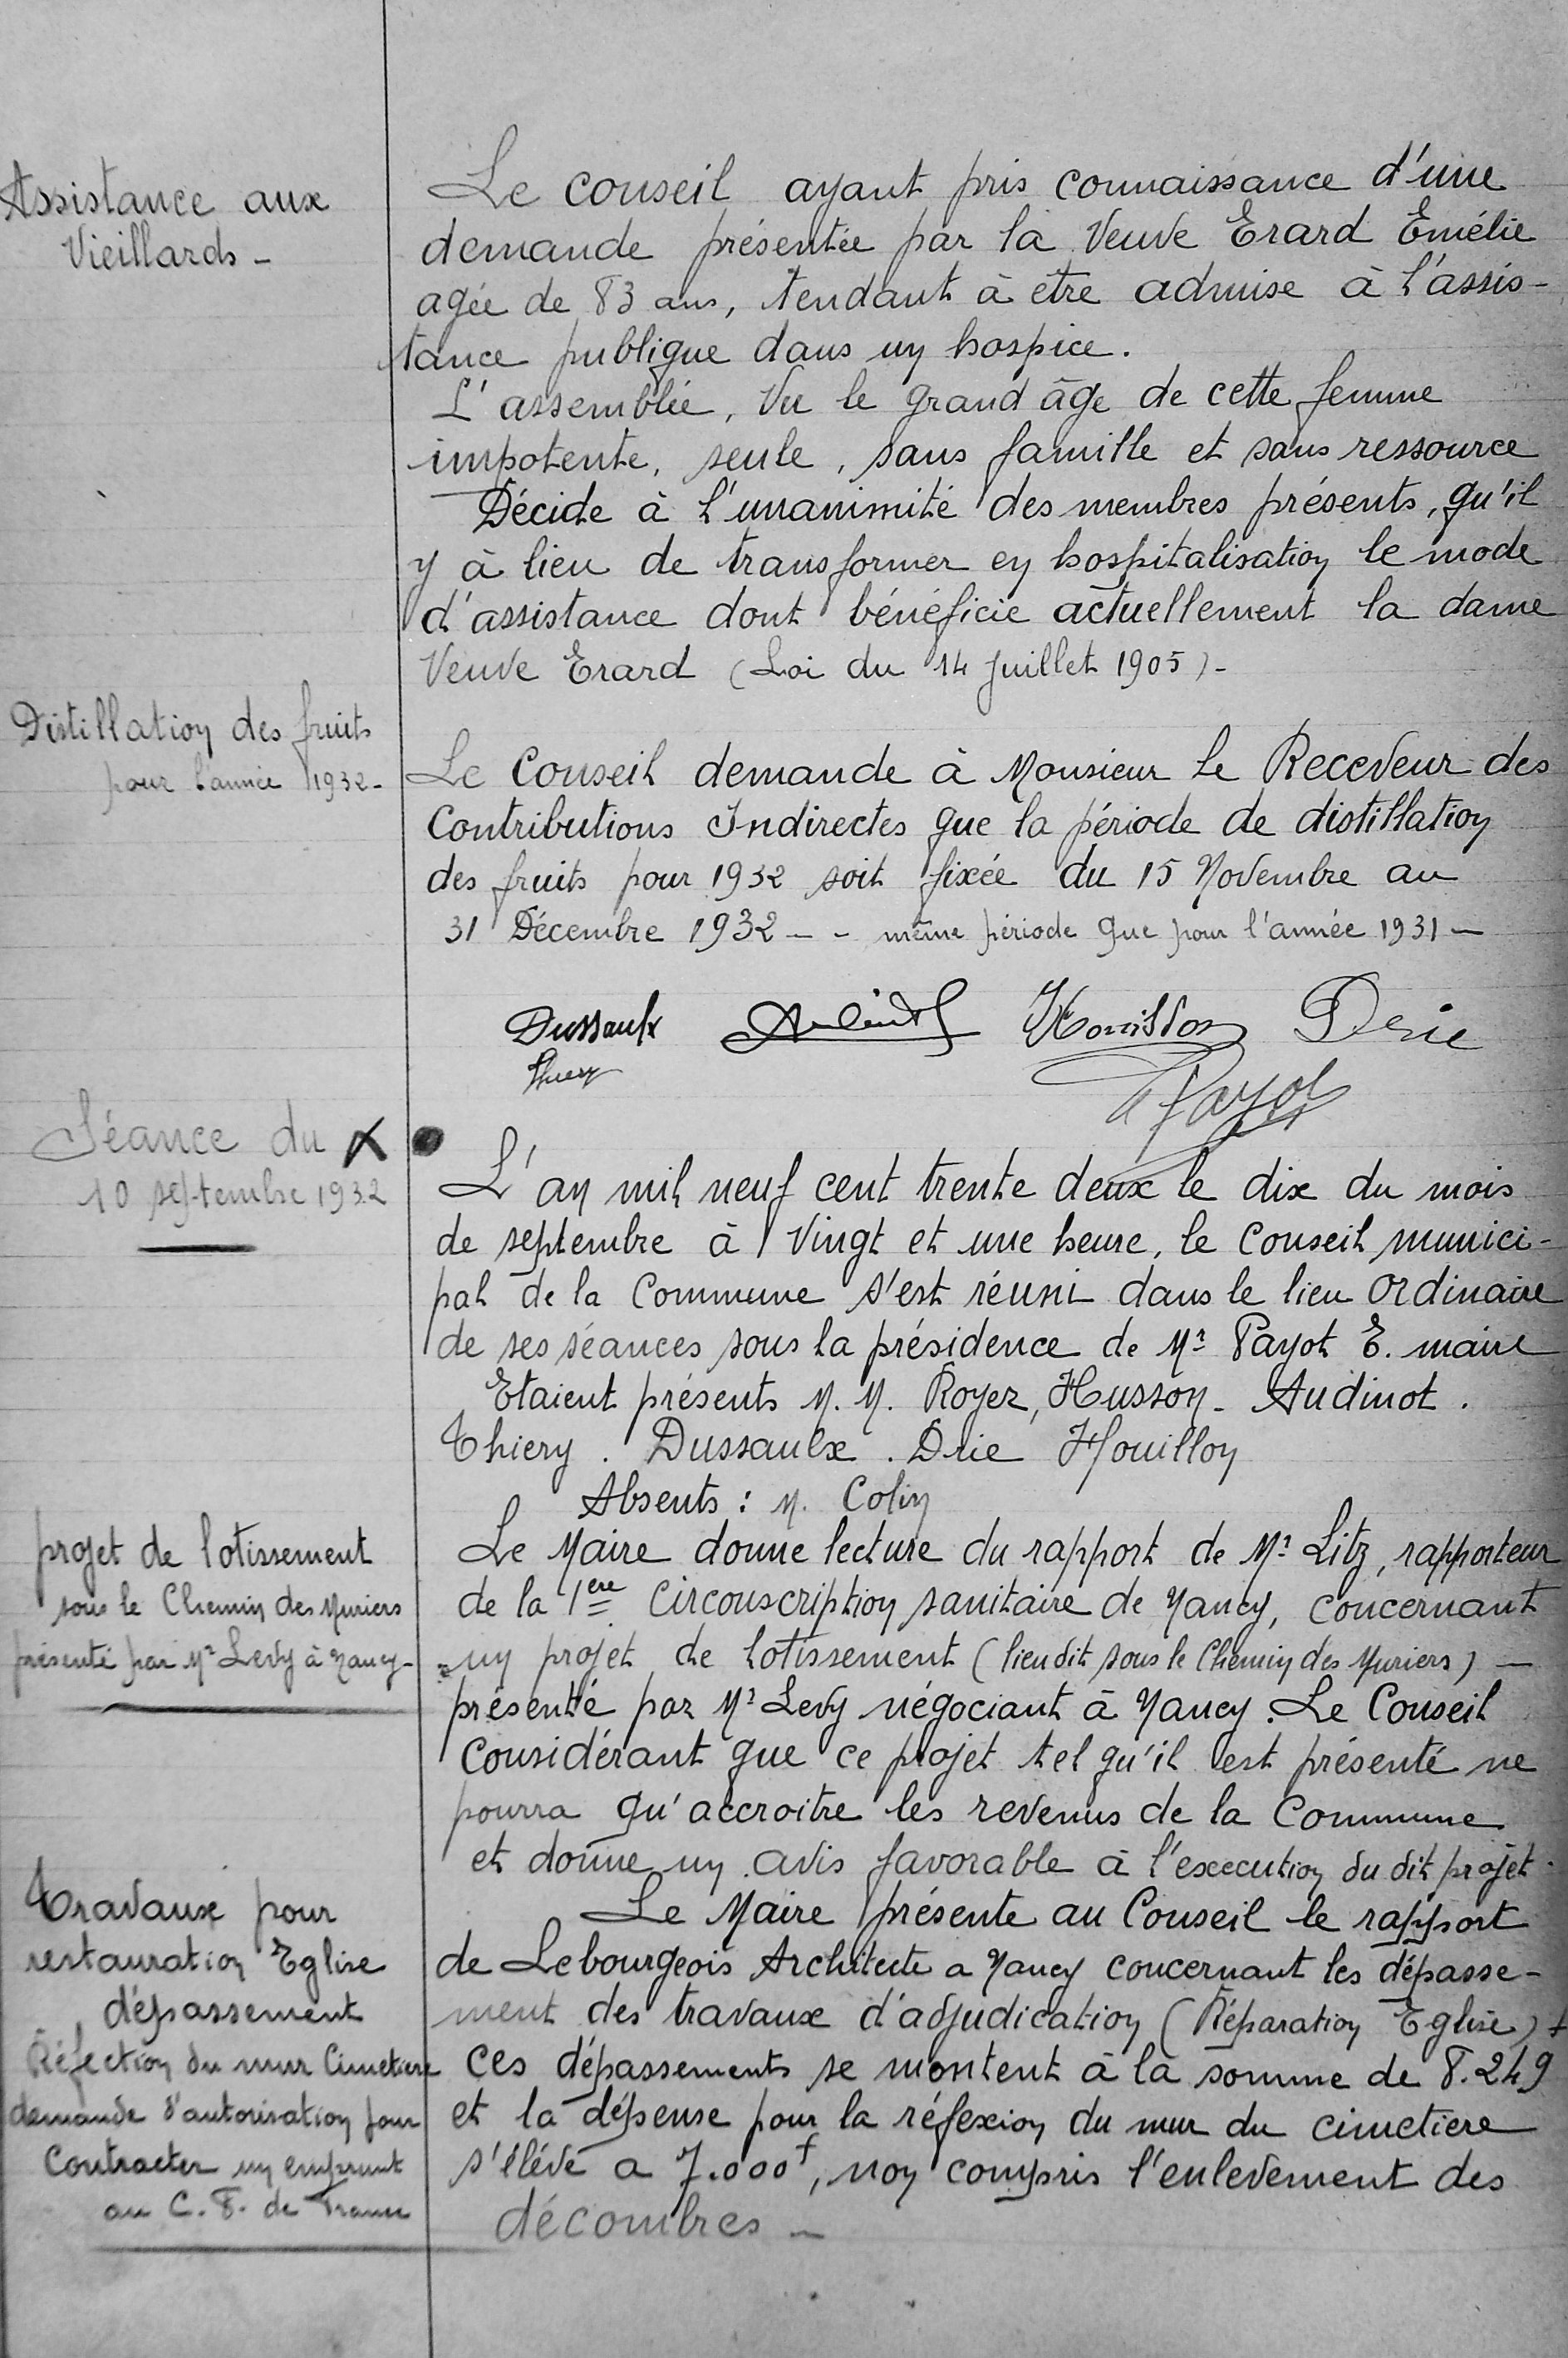 Assistance aux
Vieillards -
Le conseil ayant pris connaissance d'une
demande présentée par la Veuve Erard Emélie
agée de 83 ans, tendant à être admise à l'assis-
tance publique dans un hospice.
L'assemblée, Vu le grand âge de cette femme
impotente, seule, sans famille et sans ressource
Décide à l'unanimité des membres présents, qu'il
y à lieu de transformer en hospitalisation le mode
d'assistance dont bénéficie actuellement la dame
Veuve Erard (Loi du 14 Juillet 1905) -
Distillation des fruits
pour l'année 1932 -
Le Conseil demande à Monsieur Le Receveur des
Contributions Indirectes que la période de distillation
des fruits pour 1932 soit fixée du 15 Novembre au
31 Décembre 1932 - - même période que pour l'année 1931 -
Dussaulx Houillon Drie
Thiery
Payot
Séance du
10 septembre 1932
L'an mil neuf cent trente deux le dix du mois
de septembre à Vingt et une heure, le Conseil munici-
pal de la Commune s'est réuni dans le lieu Ordinaire
de ses séances sous la présidence de Mr Payot E. maire
Etaient présents M. M. Royer, Husson - Audinot.
Thiery. Dussaulx. Drie Houillon
Absents : M. Colin
projet de lotissement
sous le Chemin des Muriers
présenté par Mr Levy à Nancy -
Le Maire donne lecture du rapport de Mr Litz, rapporteur
de la 1ère Circonscription sanitaire de Nancy, concernant
un projet de lotissement (lieu dit sous le Chemin des Muriers) -
présenté par Mr Levy négociant à Nancy. Le Conseil
Considérant que ce projet tel qu'il est présenté ne
pourra qu'accroitre les revenus de la Commune
et donne un avis favorable à l'execution du dit projet.
Travaux pour
restauration Eglise
dépassement
Réfection du mur Cimetiere
demande d'autorisation pour
Contracter un emprunt
au C. F. de France
Le Maire présente au Conseil le rapport
de Lebourgeois Architecte a Nancy concernant les dépasse-
ment des travaux d'adjudication (Réparation Eglise)
Ces dépassements se montent à la somme de 8.249
et la dépense pour la réfexion du mur du cimetiere
s'élève a 7.000f, non compris l'enlevement des
décombres -